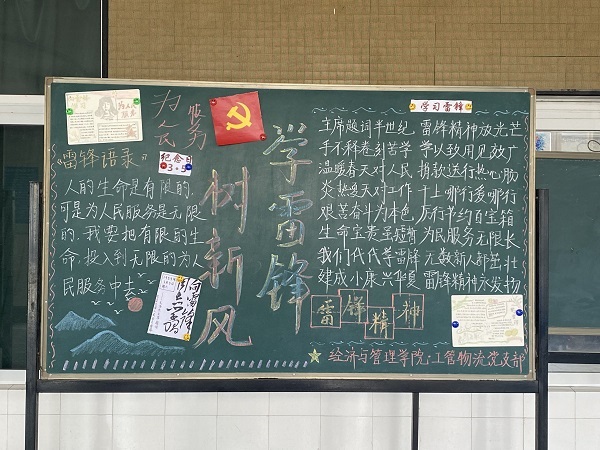 为民
服务
《雷锋语录》
纪念日
3•5
人的生命是有限的，
可是为人民服务是无限
的，我要把有限的生
命，投入到无限的为人
民服务中去。
树新风
学雷锋
向雷锋
学习雷锋
主席题词半世纪 雷锋精神放光芒
手不释卷刻苦学 学以致用见效广
温暖春天对人民 捐款送行热心肠
炎热夏天对工作 干上哪行爱哪行
艰苦奋斗为本色 厉行节约百宝箱
生命宝贵虽短暂 为民服务无限长
我们代代学雷锋 无数新人都茁壮
建成小康兴华夏 雷锋精神永发扬
雷锋精神
经济与管理学院·工管物流党支部